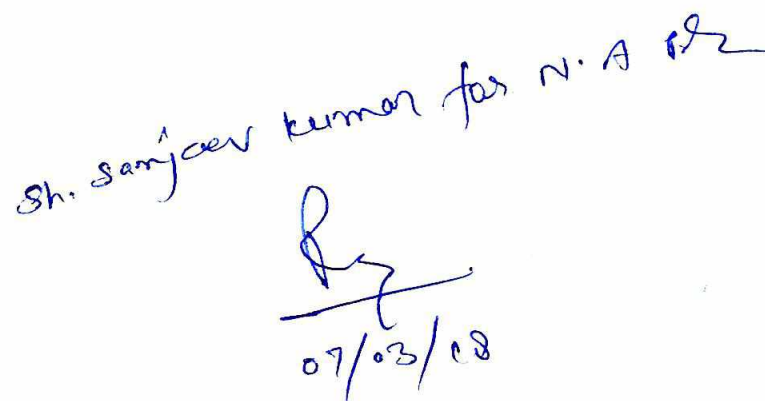 Sh. Sanjeev kumar for N.A Plz
07/03/18